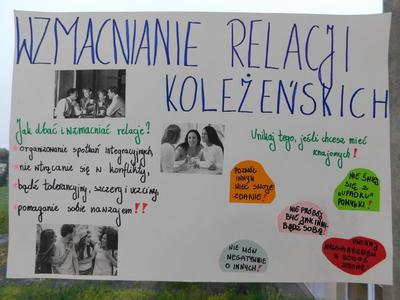 WZMACNIANIE RELACJI
KOLEŻEŃSKICH
Jak dbać i wzmacniać relacje?
organizowanie spotkań integracyjnych,
nie wtrącanie się w konflikty,
bądź tolerancyjny, szczery i uczciwy,
pomaganie sobie nawzajem!!
Unikaj tego, jeśli chcesz mieć
znajomych!
POZWÓL
INNYM
MIEĆ SWOJE
ZDANIE!
NIE ŚMIEJ
SIĘ Z
UPADKU
POMYŁKI!
NIE PRÓBUJ
BYĆ JAK INNI
BĄDŹ SOBĄ!
NIE MÓW
NEGATYWNIE
O INNYCH!
UNIKAJ
W
STRONĘ